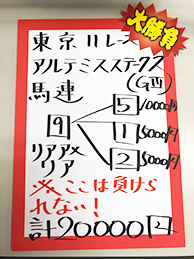 大勝負
東京11レース
アルテミスステークス
(GⅢ)
馬連
5 10000円
9 11 5000円
リアアメリア 2 5000円
※ここは負けられない!
計20000円